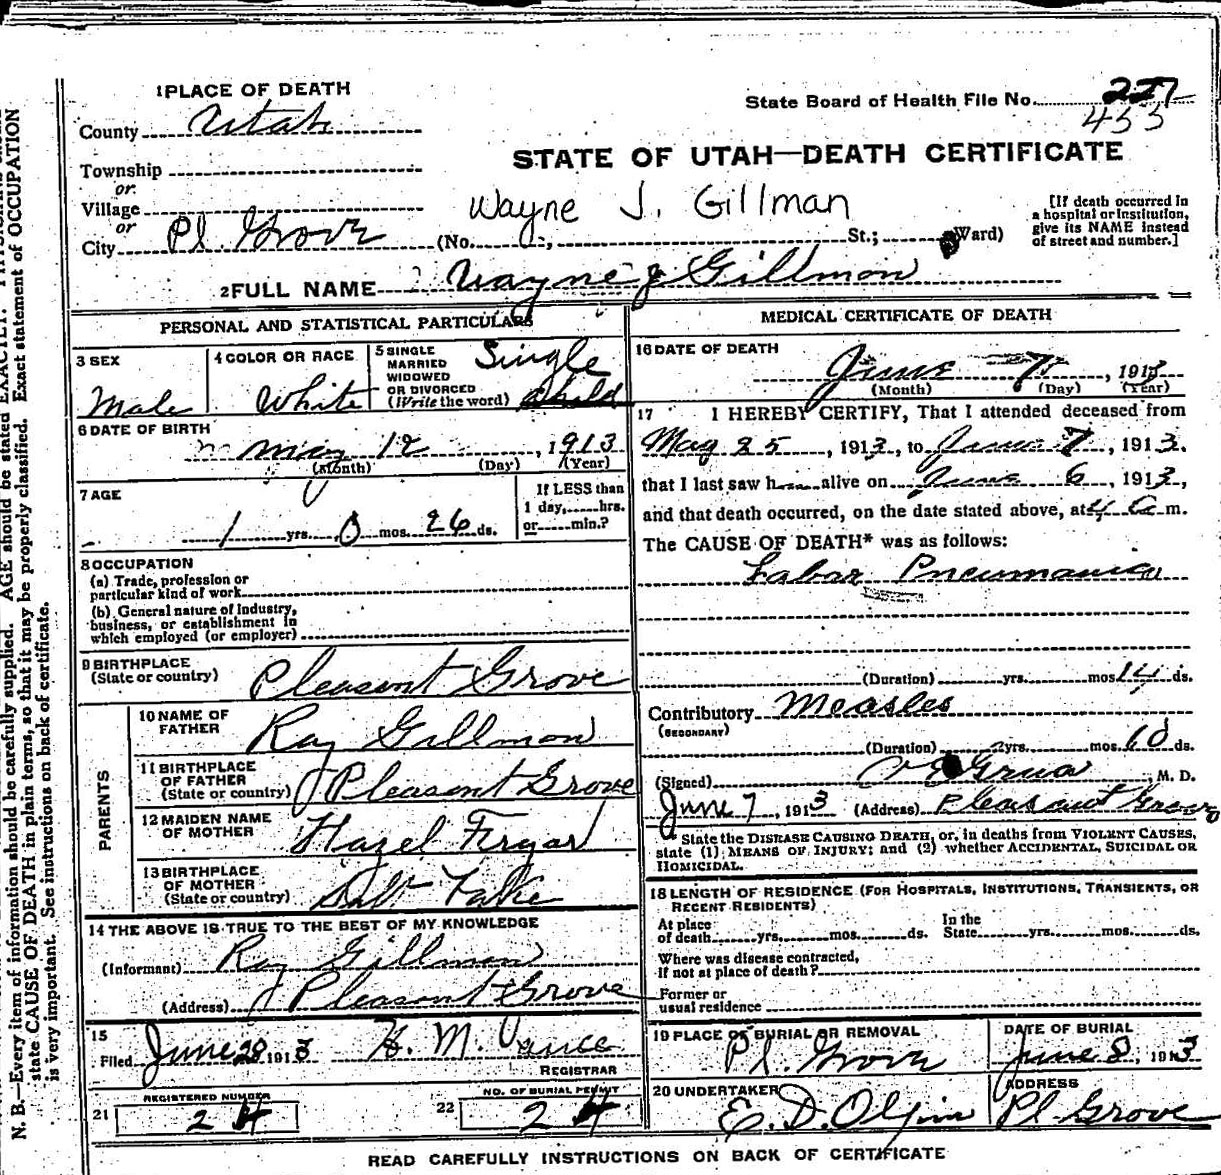 1 PLACE OF DEATH
County Utah
State Board of Health File No. 227
453
STATE OF UTAH—DEATH CERTIFICATE
Township
or
Village
or
City Pl. Grove (No. , St.; Ward)
Wayne J. Gillman
[If death occurred in
a hospital or institution,
give its NAME instead
of street and number.]
2 FULL NAME Wayne J Gillmon
PERSONAL AND STATISTICAL PARTICULARS
3 SEX
Male
4 COLOR OR RACE
White
5 SINGLE
MARRIED
WIDOWED
OR DIVORCED
(Write the word)
Single
Child
6 DATE OF BIRTH
May 12, 1913
(Month) (Day) (Year)
7 AGE
1 yrs. 0 mos. 26 ds.
If LESS than
1 day,......hrs.
or......min.?
8 OCCUPATION
(a) Trade, profession or
particular kind of work
(b) General nature of industry,
business, or establishment in
which employed (or employer)
9 BIRTHPLACE
(State or country) Pleasant Grove
PARENTS
10 NAME OF
FATHER Ray Gillmon
11 BIRTHPLACE
OF FATHER
(State or country) Pleasant Grove
12 MAIDEN NAME
OF MOTHER Hazel
13 BIRTHPLACE
OF MOTHER
(State or country) Salt Lake
14 THE ABOVE IS TRUE TO THE BEST OF MY KNOWLEDGE
(Informant) Ray Gillmon
(Address) Pleasant Grove
15
Filed June 28 1913 H. M. Vance
REGISTRAR
21 REGISTERED NUMBER
24
22 NO. OF BURIAL PERMIT
24
MEDICAL CERTIFICATE OF DEATH
16 DATE OF DEATH
June 7, 1913
(Month) (Day) (Year)
17 I HEREBY CERTIFY, That I attended deceased from
May 25, 1913, to June 7, 1913.
that I last saw h alive on June 6, 1913,
and that death occurred, on the date stated above, at 4 a m.
The CAUSE OF DEATH* was as follows:
Labar Pneumania
(Duration) yrs. mos. 14 ds.
Contributory Measles
(SECONDARY)
(Duration) yrs. mos. 10 ds.
(Signed) Grua, M. D.
June 7, 1913 (Address) Pleasant Grove
* State the DISEASE CAUSING DEATH, or, in deaths from VIOLENT CAUSES,
state (1) MEANS OF INJURY; and (2) whether ACCIDENTAL, SUICIDAL OR
HOMICIDAL.
18 LENGTH OF RESIDENCE (FOR HOSPITALS, INSTITUTIONS, TRANSIENTS, OR
RECENT RESIDENTS)
At place
of death yrs. mos. ds.
In the
State yrs. mos. ds.
Where was disease contracted,
if not at place of death?
Former or
usual residence
19 PLACE OF BURIAL OR REMOVAL
Pl. Grove
DATE OF BURIAL
June 8, 1913
20 UNDERTAKER
E. D. Olpin
ADDRESS
Pl Grove
READ CAREFULLY INSTRUCTIONS ON BACK OF CERTIFICATE
N. B.—Every item of information should be carefully supplied. AGE should be stated EXACTLY.
state CAUSE OF DEATH in plain terms, so that it may be properly classified. Exact statement of OCCUPATION
is very important. See instructions on back of certificate.